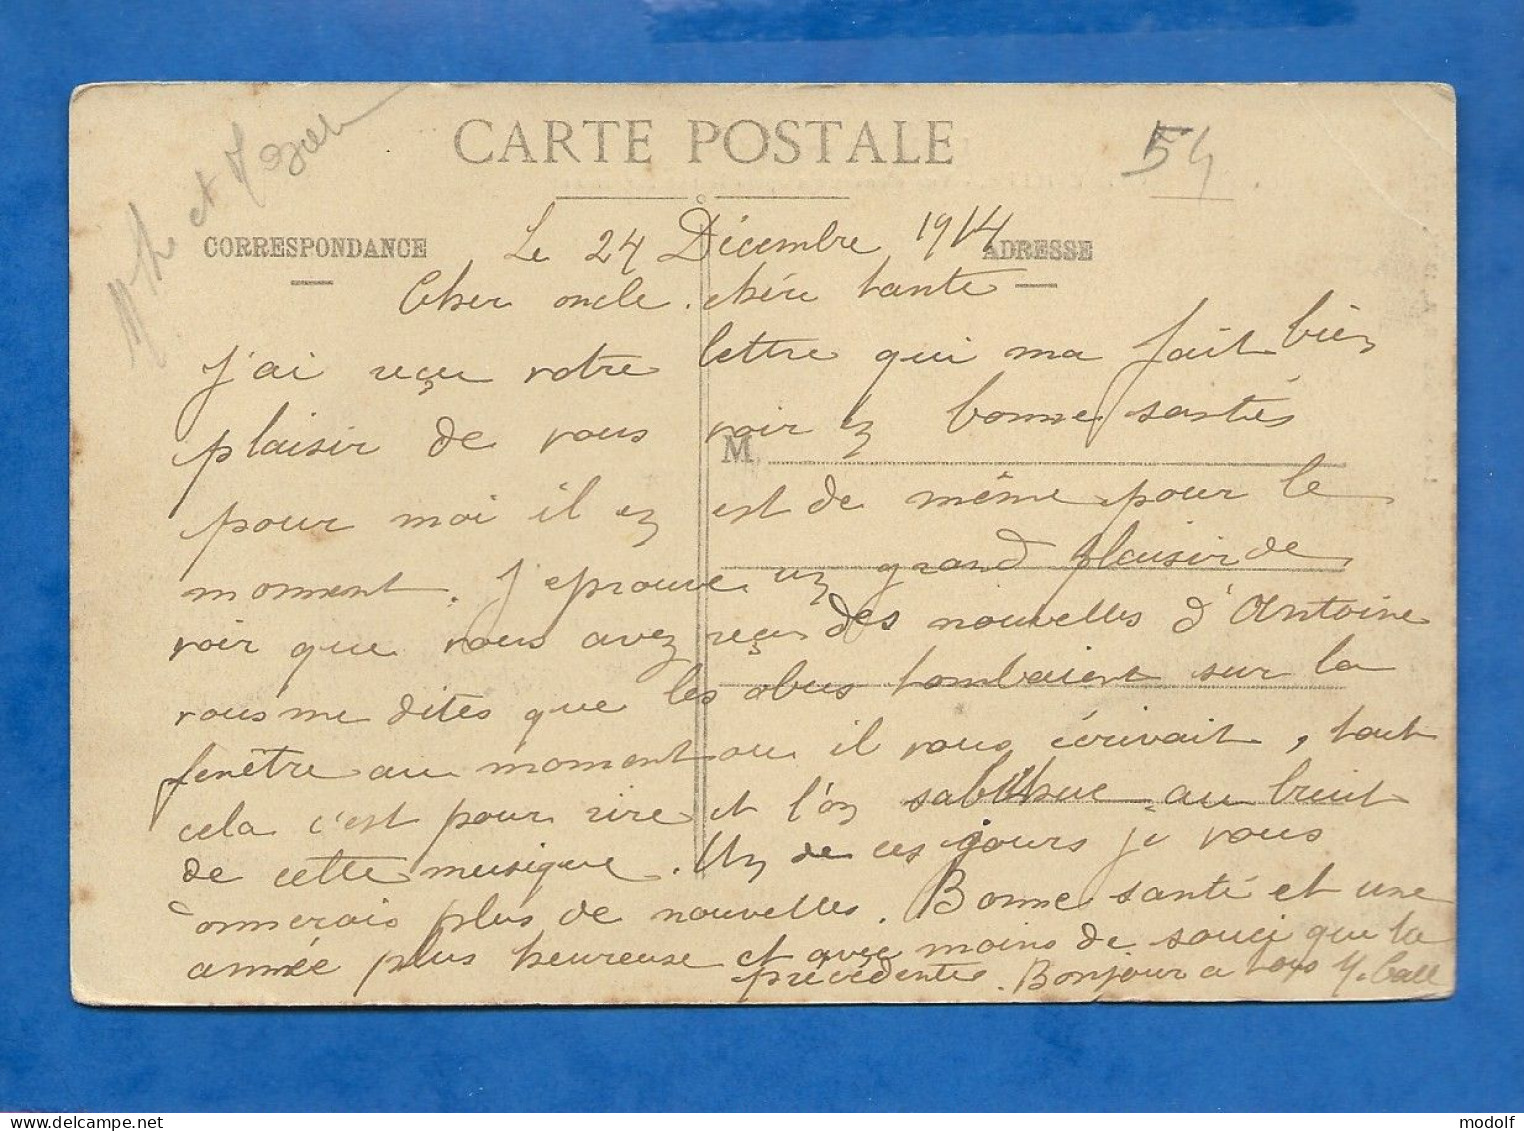 CARTE POSTALE
54
CORRESPONDANCE
ADRESSE
Le 24 Décembre 1914
Cher oncle. chère tante
J'ai reçu votre lettre qui ma fait bien
plaisir de vous voir en bonne santés
M
pour moi il en est de même pour le
moment. J'eprouve un grand plaisir de
voir que vous avez reçu des nouvelles d'Antoine
vous me dites que les obus tombaient sur la
fenêtre au moment ou il vous écrivait, tout
cela c'est pour rire et l'on sabithue au bruit
de cette musique. Un de ces jours je vous
donnerais plus de nouvelles. Bonne santé et une
année plus heureuse et avec moins de souci que la
précédente. Bonjour a tous
modolf